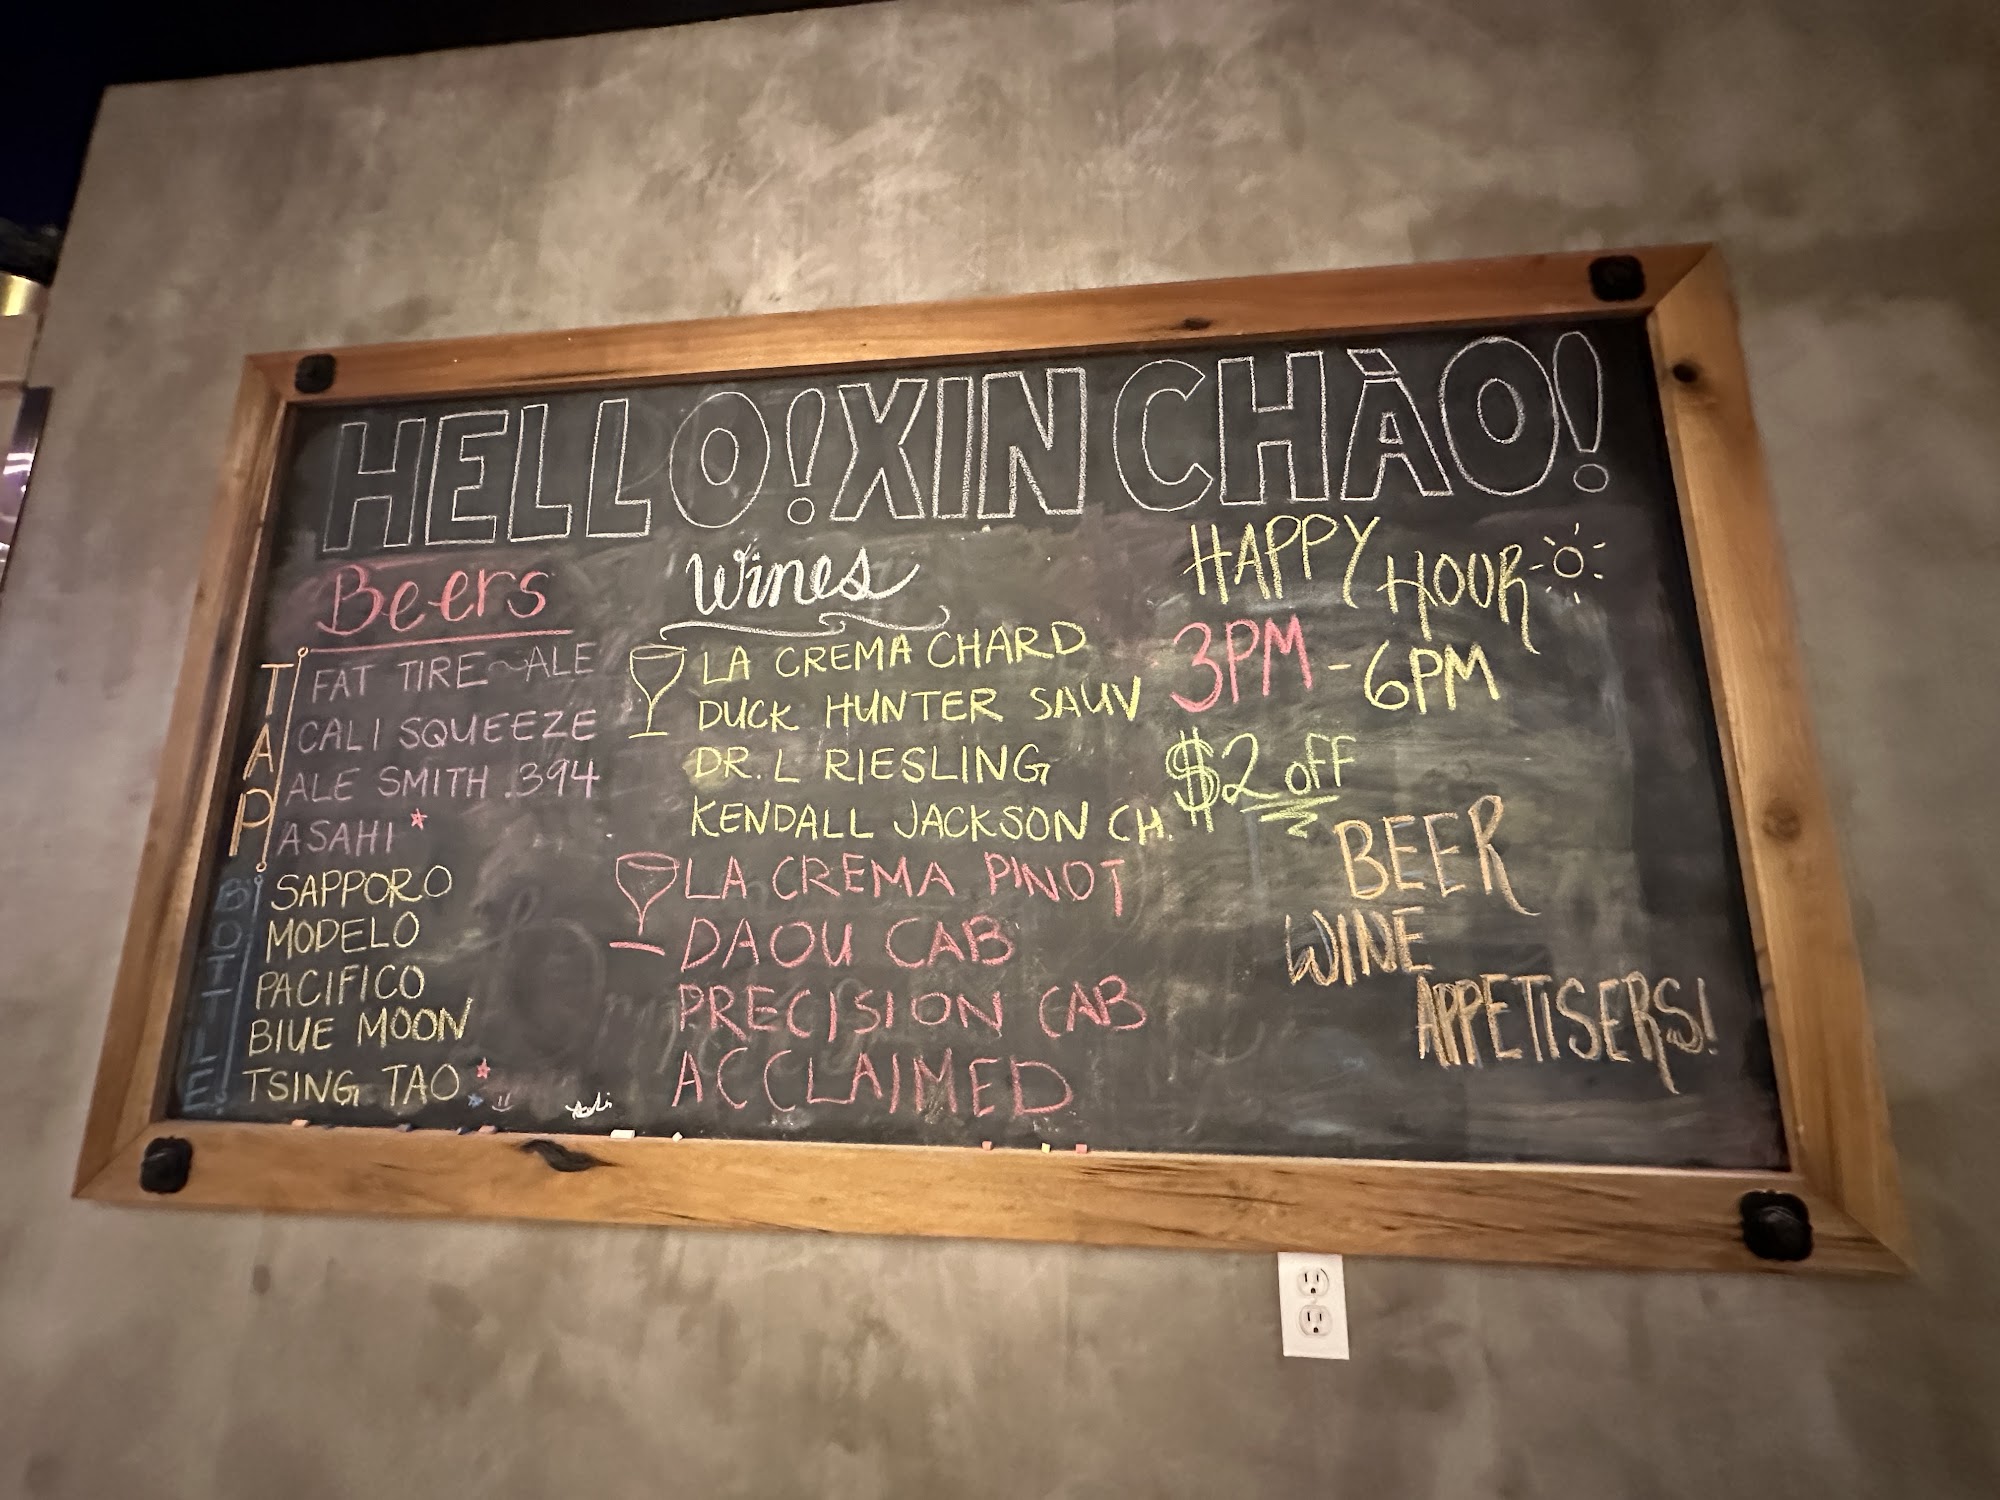 HELLO! XIN CHÀO!
Beers
TAP
FAT TIRE ~ ALE
CALI SQUEEZE
ALE SMITH .394
ASAHI
BOTTLE
SAPPORO
MODELO
PACIFICO
BLUE MOON
TSING TAO
Wines
LA CREMA CHARD
DUCK HUNTER SAUV
DR. L RIESLING
KENDALL JACKSON CH.
LA CREMA PINOT
DAOU CAB
PRECISION CAB
ACCLAIMED
HAPPY
HOUR
3PM - 6PM
$2 OFF
BEER
WINE
APPETISERS!